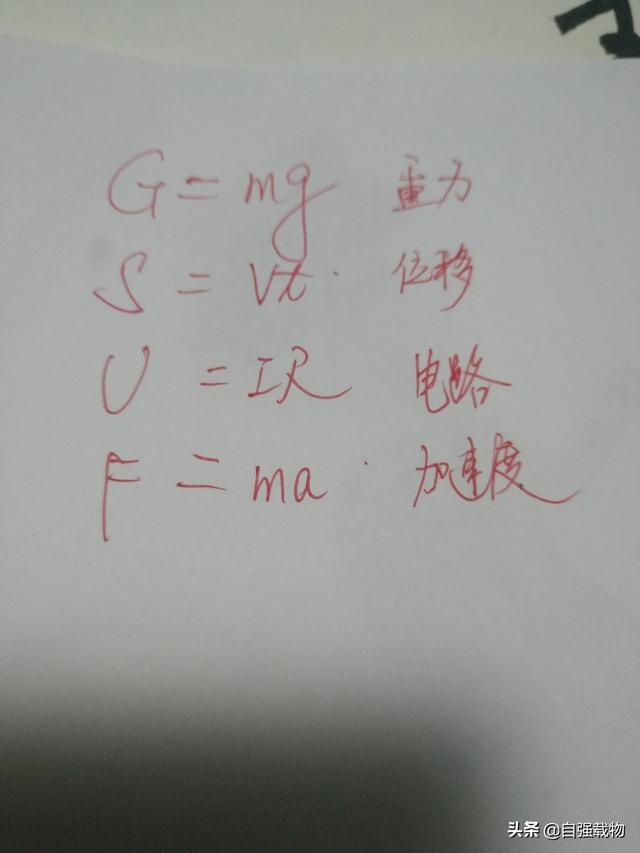 G = mg 重力
S = Vt. 位移
U = IR 电路
F = ma. 加速度
头条 @自强载物